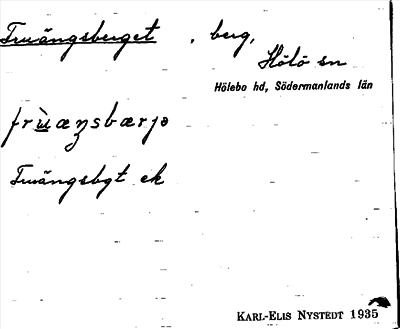 Fruängsberget, berg,
Hölö sn
Hölebo hd, Södermanlands län
frùæŋsbærjə
Fruängsbgt ek
KARL-ELIS NYSTEDT 1935